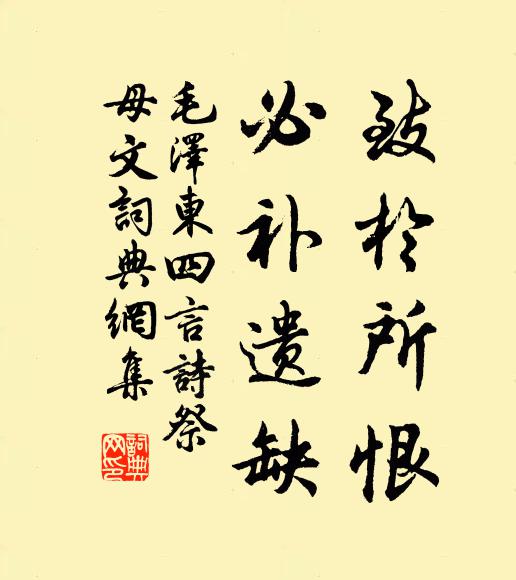 致於所恨
必补遗缺
毛澤東四言詩祭
母文詞典網集
詞典网印